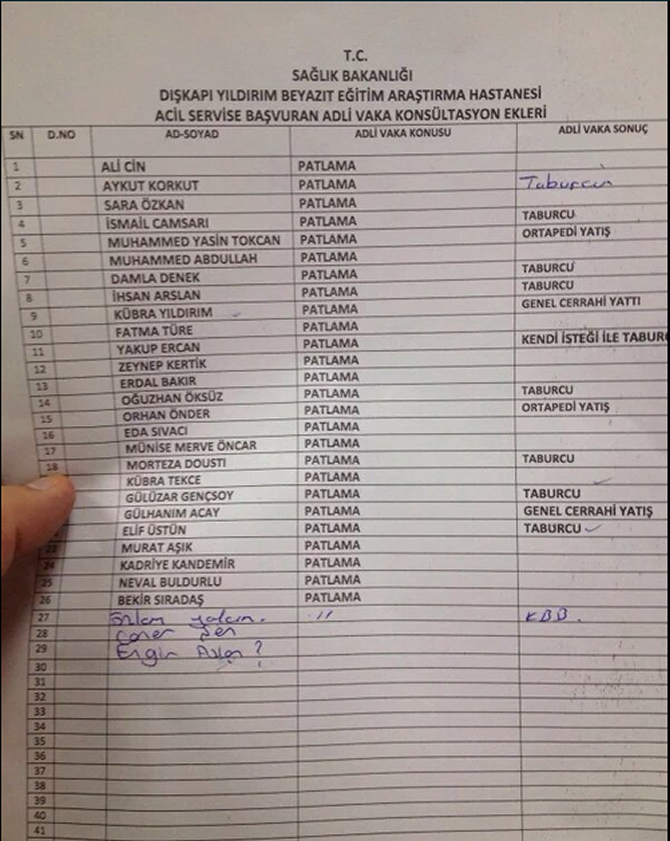 T.C.
SAĞLIK BAKANLIĞI
DIŞKAPI YILDIRIM BEYAZIT EĞİTİM ARAŞTIRMA HASTANESİ
ACİL SERVİSE BAŞVURAN ADLİ VAKA KONSÜLTASYON EKLERİ
SN D.NO AD-SOYAD ADLİ VAKA KONUSU ADLİ VAKA SONUÇ
1 ALİ CİN PATLAMA
2 AYKUT KORKUT PATLAMA Taburcu
3 SARA ÖZKAN PATLAMA
4 İSMAİL CAMSARI PATLAMA TABURCU
5 MUHAMMED YASİN TOKCAN PATLAMA ORTAPEDİ YATIŞ
6 MUHAMMED ABDULLAH PATLAMA
7 DAMLA DENEK PATLAMA TABURCU
8 İHSAN ARSLAN PATLAMA TABURCU
9 KÜBRA YILDIRIM PATLAMA GENEL CERRAHİ YATTI
10 FATMA TÜRE PATLAMA
11 YAKUP ERCAN PATLAMA KENDİ İSTEĞİ İLE TABURC
12 ZEYNEP KERTİK PATLAMA
13 ERDAL BAKIR PATLAMA
14 OĞUZHAN ÖKSÜZ PATLAMA TABURCU
15 ORHAN ÖNDER PATLAMA ORTAPEDİ YATIŞ
16 EDA SIVACI PATLAMA
17 MÜNİSE MERVE ÖNCAR PATLAMA
18 MORTEZA DOUSTI PATLAMA TABURCU
KÜBRA TEKCE PATLAMA
GÜLÜZAR GENÇSOY PATLAMA TABURCU
GÜLHANIM ACAY PATLAMA GENEL CERRAHİ YATIŞ
ELİF ÜSTÜN PATLAMA TABURCU
23 MURAT AŞIK PATLAMA
24 KADRİYE KANDEMİR PATLAMA
25 NEVAL BULDURLU PATLAMA
26 BEKİR SIRADAŞ PATLAMA
27 yalçın. " KBB.
28 Caner Şen
29 Engin Aslan ?
30
31
32
33
34
35
36
37
38
39
40
41